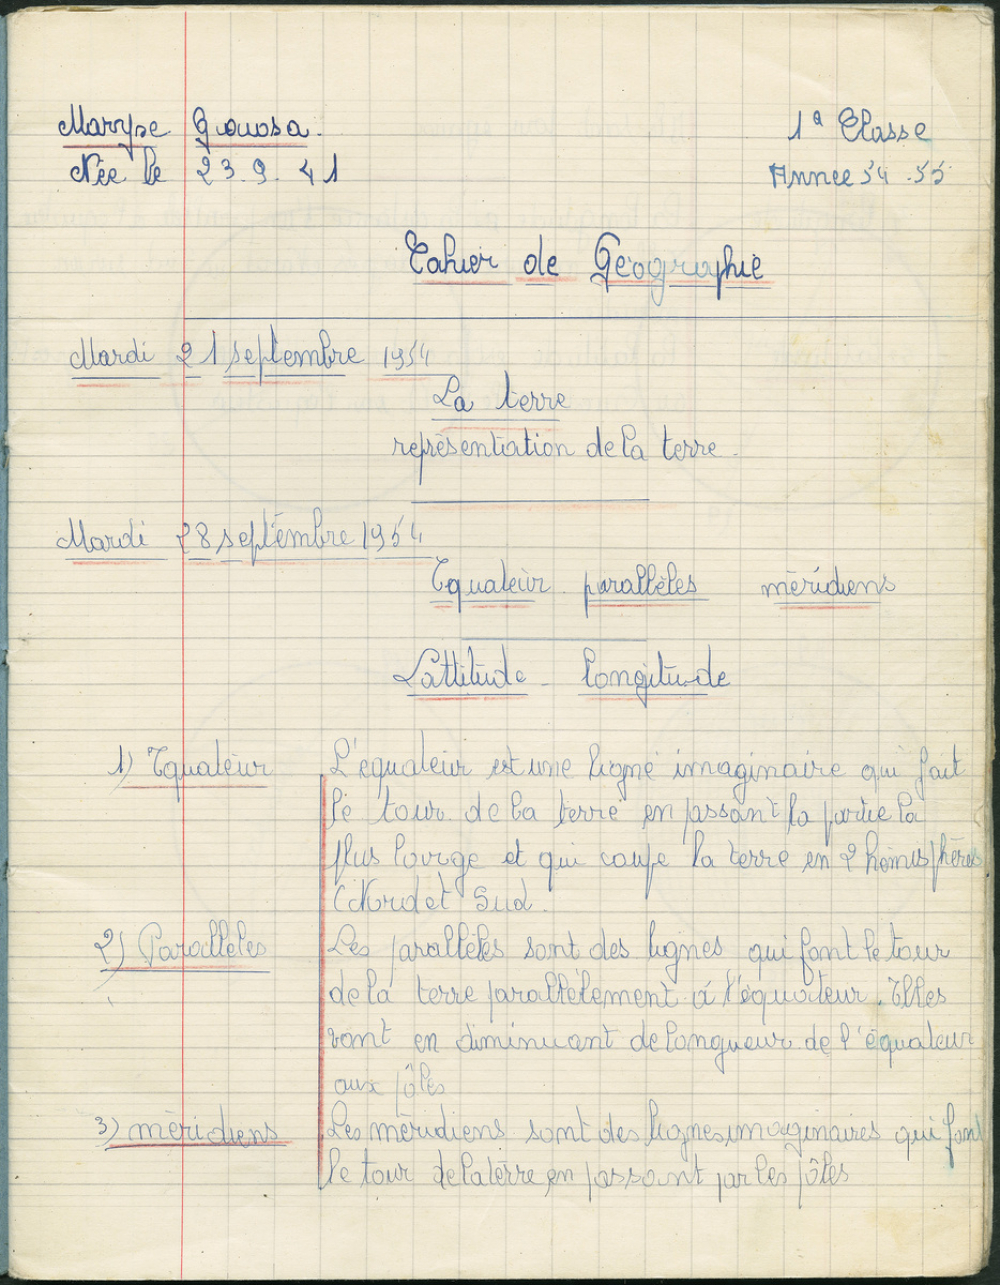 Maryse Gouosa.
1ª Classe
Née le 23.9.41
Annee 54.55
Cahier de Géographie
Mardi 21 septembre 1954
La terre
représentation de la terre.
Mardi 28 septembre 1954
Equateur parallèles méridiens
Lattitude - longitude
1) Equateur
L'équateur est une ligne imaginaire qui fait
le tour de la terre en passant la partie la
plus large et qui coupe la terre en 2 hémisphères
(Nord et Sud.
2) Parallèles
Les parallèles sont des lignes qui font le tour
de la terre parallèlement à l'équateur. Elles
vont en diminuant de longueur de l'équateur
aux pôles
3) méridiens
Les méridiens sont des lignes imaginaires qui font
le tour de la terre en passant par les pôles